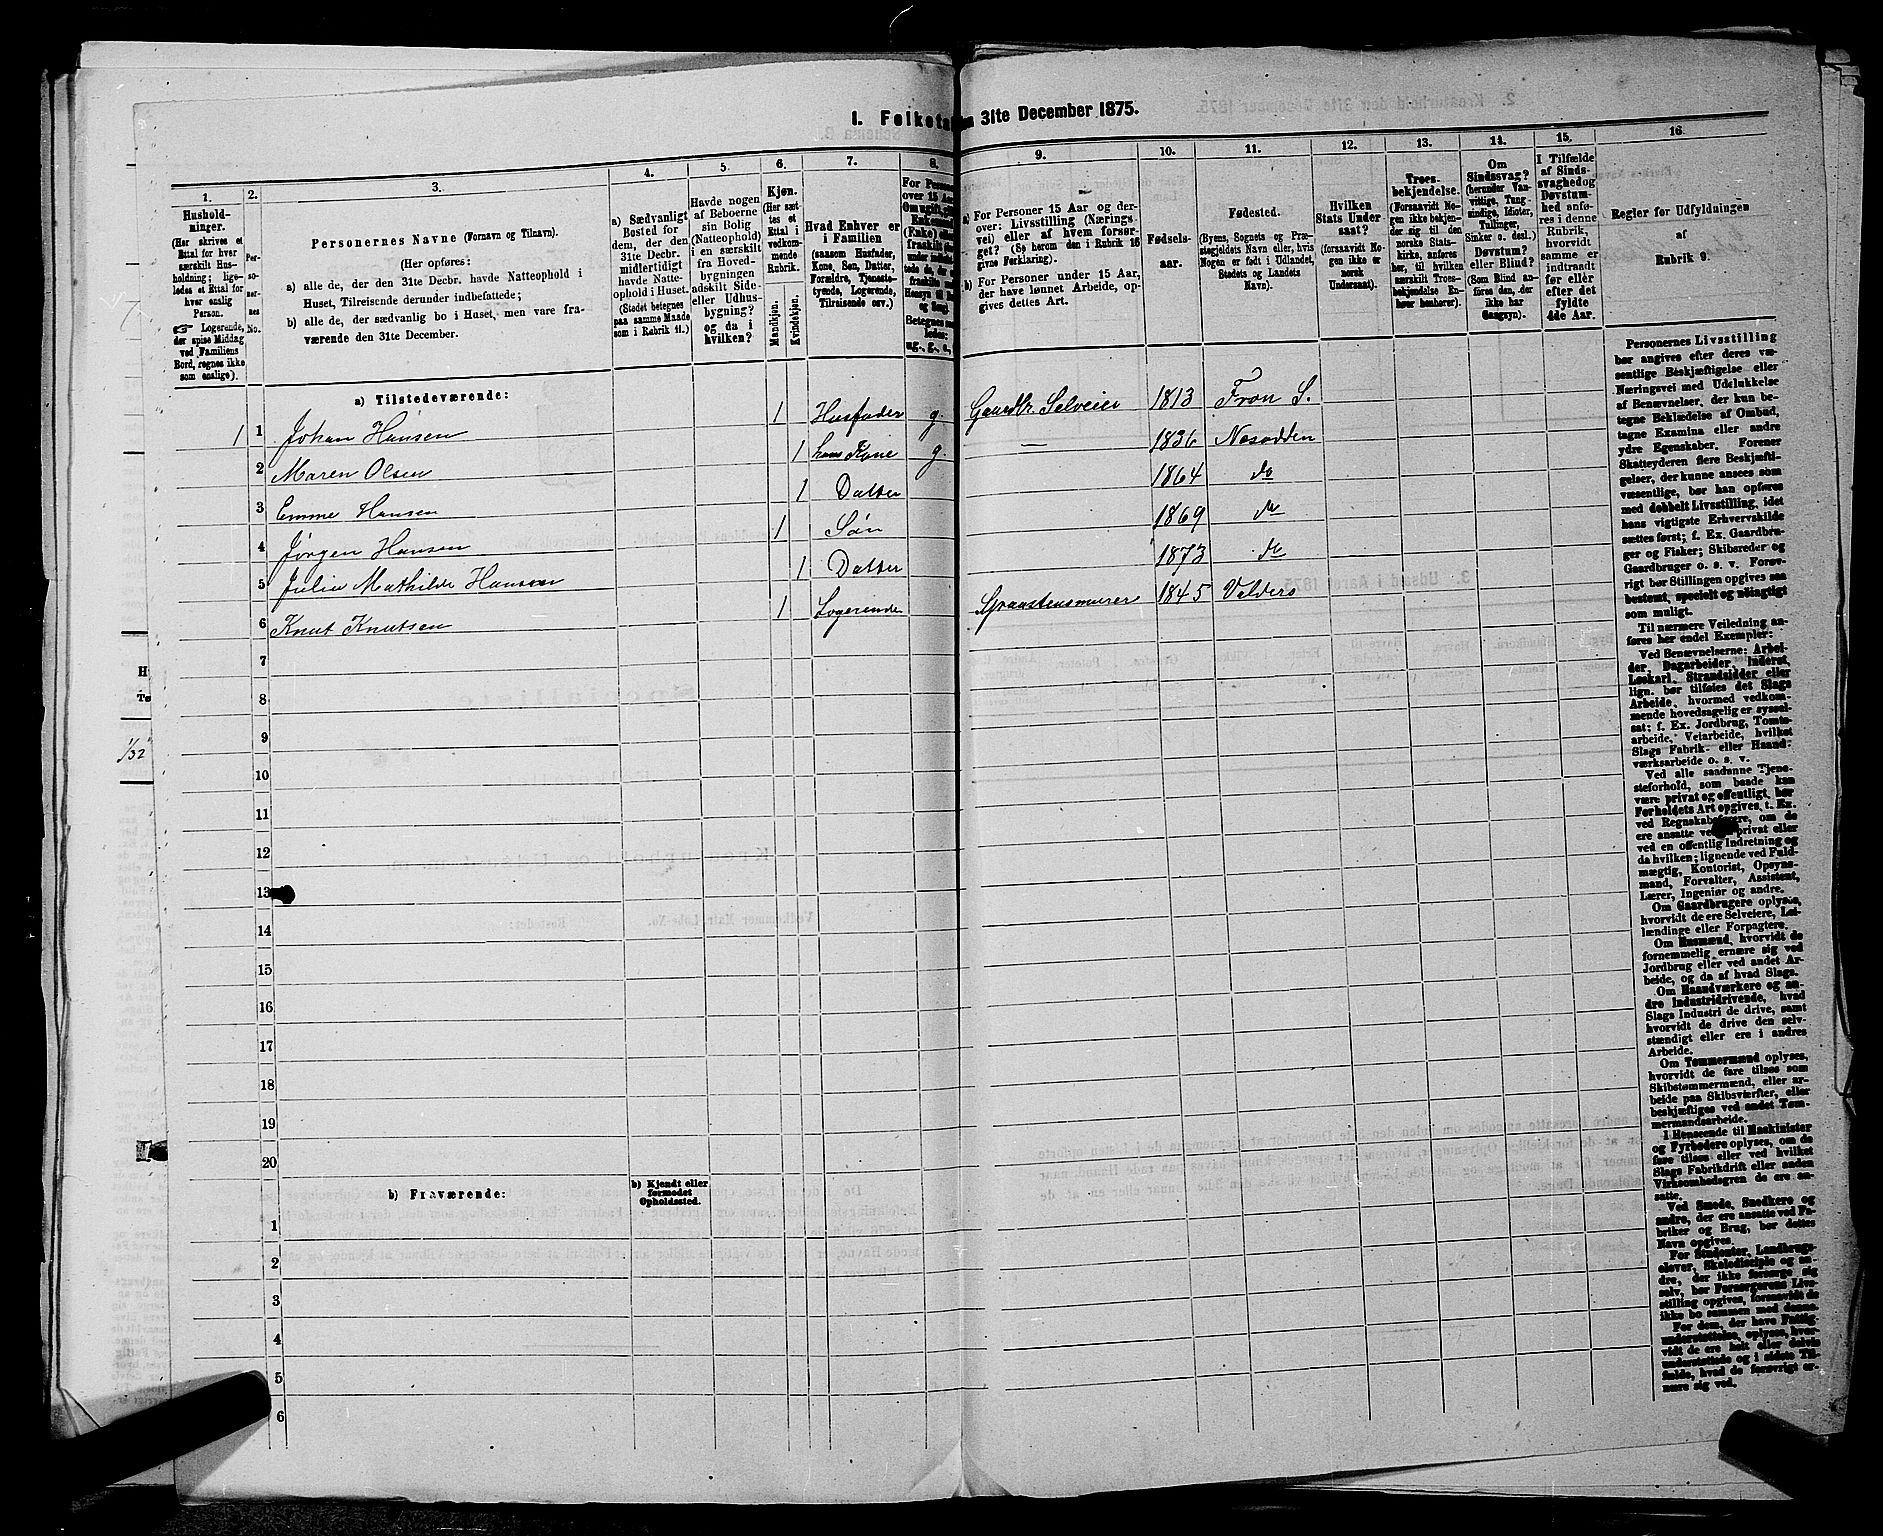 1. Folketæ
en 31te December 1875.
1.
2.
3.
4.
5.
6.
7.
8.
9.
10.
11.
12.
13.
14.
15.
16.
Hushold-
ninger.
(Her skrives et
Ettal for hver
særskilt Hus-
holdning; lige-
ledes et Ettal for
hver enslig
Person.
☞ Logerende,
der spise Middag
ved Familiens
Bord, regnes ikke
som enslige).
Per-
so-
ner-
nes
No.
Personernes Navne (Fornavn og Tilnavn).
(Her opføres:
a) alle de, der den 31te Decbr. havde Natteophold i
Huset, Tilreisende derunder indbefattede;
b) alle de, der sædvanlig bo i Huset, men vare fra-
værende den 31te December.
a) Sædvanligt
Bosted for
dem, der den
31te Decbr.
midlertidigt
havde Natte-
ophold i Huset.
(Stedet betegnes
paa samme Maade
som i Rubrik 11.)
Havde nogen
af Beboerne
sin Bolig
(Natteophold)
i en særskilt
fra Hoved-
bygningen
adskilt Side-
eller Udhus-
bygning?
og da i
hvilken?
Kjøn.
(Her sæt-
tes et
Ettal i
vedkom-
mende
Rubrik.
Mandkjøn.
Kvindekjøn.
Hvad Enhver er
i Familien
(saasom Husfader,
Kone, Søn, Datter,
Forældre, Tjeneste-
tyende, Logerende,
Tilreisende osv.)
For Persone
over 15 Aar
a) For Personer 15 Aar og der-
over: Livsstilling (Nærings-
vei) eller af hvem forsør-
get? (Se herom den i Rubrik 16
givne Forklaring).
b) For Personer under 15 Aar,
der have lønnet Arbeide, op-
gives dettes Art.
Fødsels-
aar.
Fødested.
(Byens, Sognets og Præ-
stegjeldets Navn eller, hvis
Nogen er født i Udlandet,
Stedets og Landets
Navn).
Hvilken
Stats Under-
saat?
(forsaavidt No-
gen ikke er
norsk
Undersaat).
Troes-
bekjendelse.
(Forsaavidt No-
gen ikke bekjen-
der sig til den
norske Stats-
kirke, anføres
her, til hvilken
særskilt Troes-
bekjendelse En-
hver henhører).
Om
Sindssvag?
(herunder Van-
vittige, Tung-
sindige, Idioter,
Tullinger,
Sinker o. desl.)
Døvstum?
eller Blind?
(Som Blind an-
føres den, der
ikke har
Gangsyn).
I Tilfælde
af Sinds-
svaghed og
Døvstum-
hed anfø-
res i denne
Rubrik,
hvorvidt
samme er
indtraadt
før eller
efter det
fyldte
4de Aar.
Regler for Udfyldningen
af
Rubrik 9.
a) Tilstedeværende:
1 1 Johan Hansen 1 Husfader g. Gaardbr. Selveier 1813 Fron S.
2 Maren Olsen 1 hans Kone g. — 1836 Nesodden
3 Emme Hansen 1 Datter 1864 do
4 Jørgen Hansen 1 Søn 1869 do
5 Julia Mathilde Hansen 1 Datter 1873 do
6 Knut Knutsen 1 Logerende Graastensmurer 1845 Valders
7
8
9
10
11
12
13
14
15
16
17
18
19
20
b) Fraværende:
b) Kjendt eller
formodet
Opholdssted.
1
2
3
4
5
6
1/32
Personernes Livsstilling
bør angives efter deres væ-
sentlige Beskjæftigelse eller
Næringsvei med Udelukkelse
af Benævnelser, der kun be-
tegne Beklædelse af Ombud,
tagne Examina eller andre
ydre Egenskaber. Forener
Skatteyderen flere Beskjæfti-
gelser, der kunne ansees som
væsentlige, bør han opføres
med dobbelt Livsstilling, idet
hans vigtigste Erhvervskilde
sættes først; f. Ex. Gaardbru-
ger og Fisker; Skibsreder og
Gaardbruger o. s. v. Forøv-
rigt bør Stillingen opgives saa
bestemt, specielt og nøiagtigt
som muligt.
Til nærmere Veiledning an-
føres her endel Exempler:
Ved Benævnelserne: Arbei-
der, Dagarbeider, Inderst,
Løskarl, Strandsidder eller
lign. bør tilføies det Slags
Arbeide, hvormed vedkom-
mende hovedsagelig er syssel-
sat; f. Ex. Jordbrug, Tomte-
arbeide, Veiarbeide, hvilket
Slags Fabrik- eller Haand-
værksarbeide o. s. v.
Ved alle saadanne Tjene-
steforhold, som baade kan
være privat og offentligt, bør
Forholdets Art opgives, t. Ex.
ved Regnskabsførere, om de
ere ansatte ved privat eller
ved en offentlig Indretning og
da hvilken; lignende ved Fuld-
mægtig, Kontorist, Opsyns-
mand, Forvalter, Assistent,
Lærer, Ingeniør og andre.
Om Gaardbrugere oplyses,
hvorvidt de ere Selveiere, Lei-
lændinge eller Forpagtere.
Om Husmænd, hvorvidt de
fornemmelig ernære sig ved
Jordbrug eller ved andet Ar-
beide, og da af hvad Slags.
Om Haandværkere og an-
dre Industridrivende, hvad
Slags Industri de drive, samt
hvorvidt de drive den selv-
stændigt eller ere i andres
Arbeide.
Om Tømmermænd oplyses,
hvorvidt de fare tilsøs som
Skibstømmermænd, eller ar-
beide paa Skibsværfter, eller
beskjæftiges ved andet Tøm-
mermandsarbeide.
I Henseende til Maskinister
og Fyrbødere oplyses, om de
fare tilsøs eller ved hvilket
Slags Fabrikdrift eller anden
Virksomhedsgren de ere an-
satte.
Ved Smede, Snedkere og
andre, der ere ansatte ved Fa-
briker og Brug, bør dettes
Navn opgives.
For Studenter, Landbrugs-
elever, Skoledisciple og an-
dre, der ikke forsørge sig
selv, bør Forsørgerens Livs-
stilling opgives, forsaavidt de
ikke bo sammen med denne.
For dem, der have Fattig-
understøttelse, oplyses, hvor-
vidt de ere helt eller delvis
understøttede og i sidste Til-
fælde, hvad de forøvrigt er-
nære sig ved.